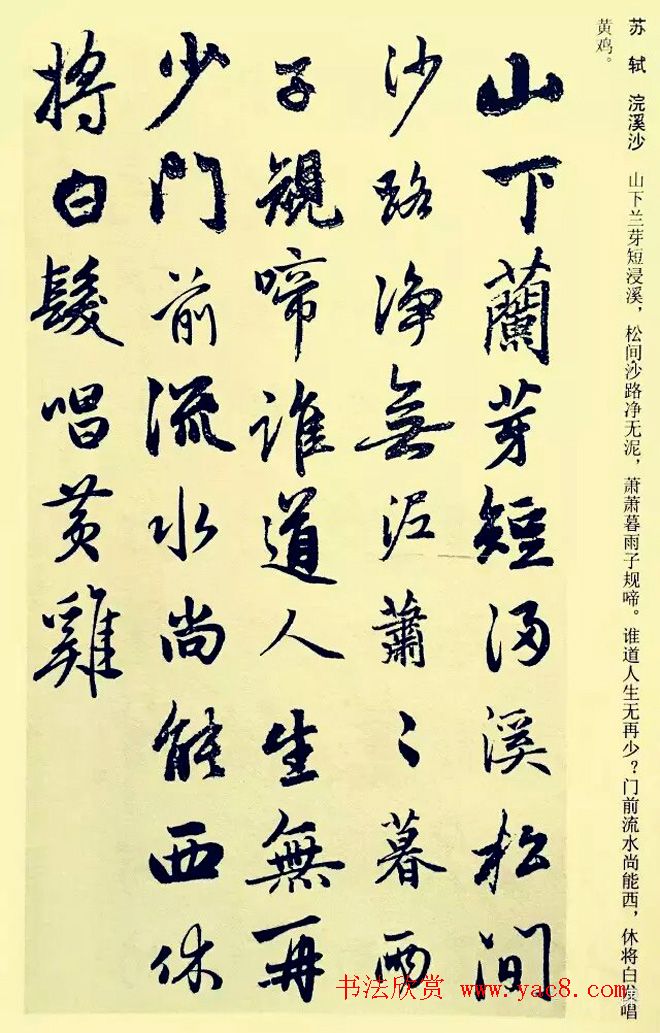 苏轼 浣溪沙 山下兰芽短浸溪，松间沙路净无泥，萧萧暮雨子规啼。谁道人生无再少？门前流水尚能西，休将白发唱
黄鸡。
山下蘭芽短浸溪松间
沙路净無泥蕭〻暮雨
子規啼谁道人生無再
少門前流水尚能西休
将白髮唱黄雞
书法欣赏 www.yac8.com